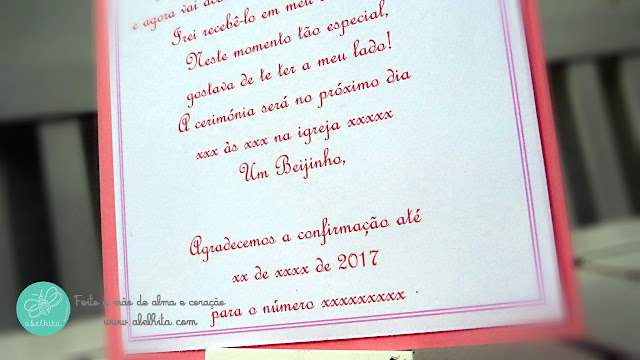 e agora vai
Irei recebê-lo em meu
Neste momento tão especial,
gostava de te ter a meu lado!
A cerimónia será no próximo dia
xxx às xxx na igreja xxxxx
Um Beijinho,
Agradecemos a confirmação até
xx de xxxx de 2017
para o número xxxxxxxxx
abelhita
Feito à mão de alma e coração
www.abelhita.com